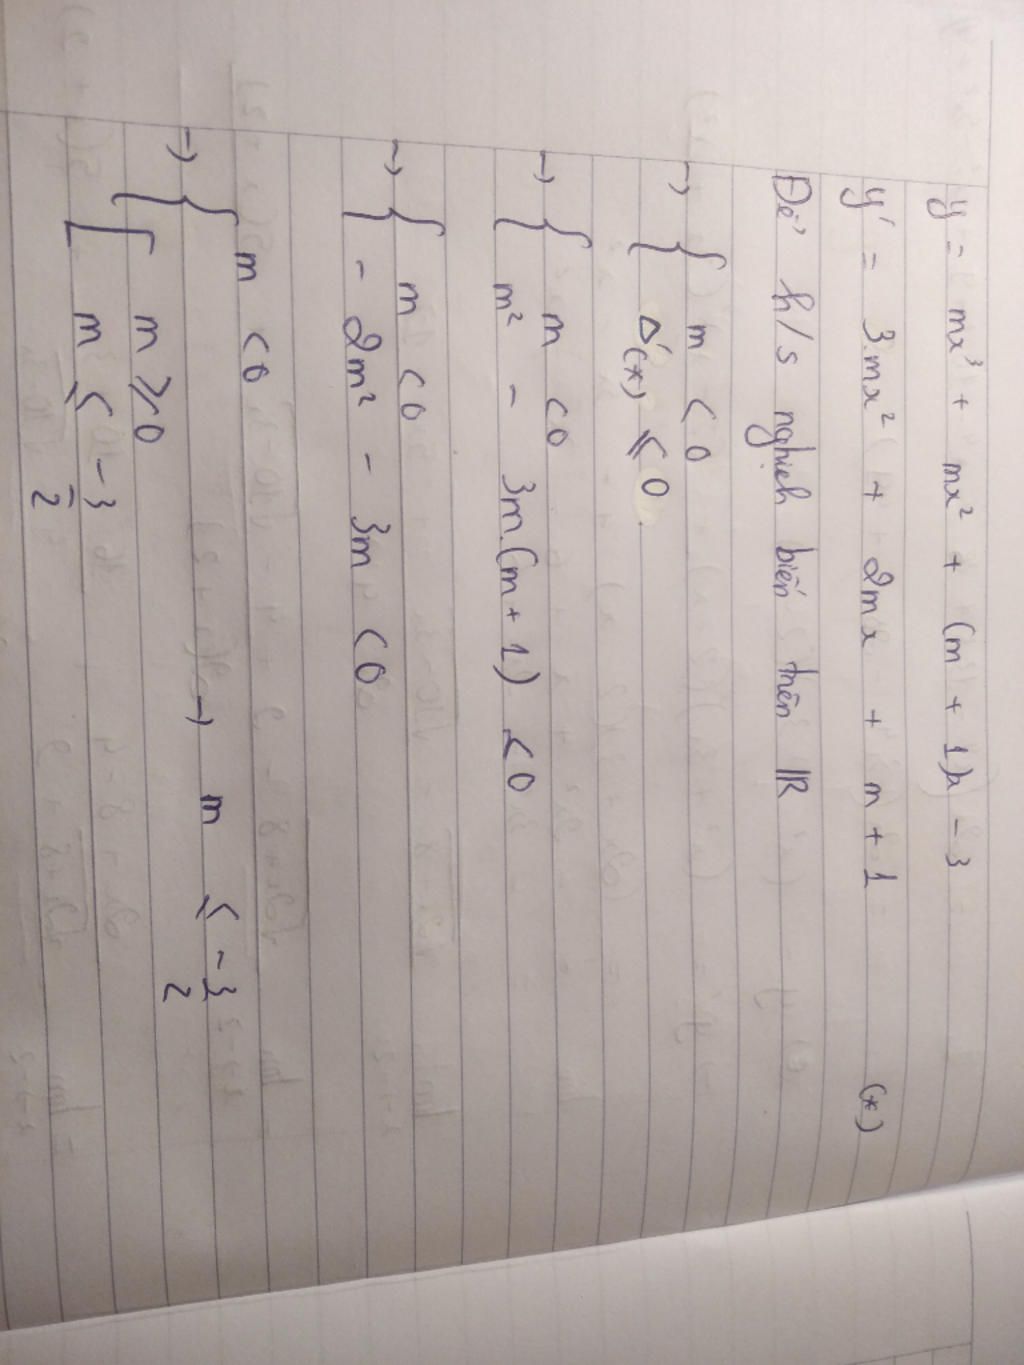 y = mx³ + mx² + (m + 1)x - 3
y' = 3.mx² + 2mx + m + 1 (*)
Để h/s nghịch biến trên R
→ { m < 0
Δ'(*) ≤ 0
→ { m < 0
m² - 3m.(m + 1) < 0
→ { m < 0
- 2m² - 3m < 0
→ { m < 0
[ m ≥ 0 → m ≤ -3/2
m ≤ -3/2